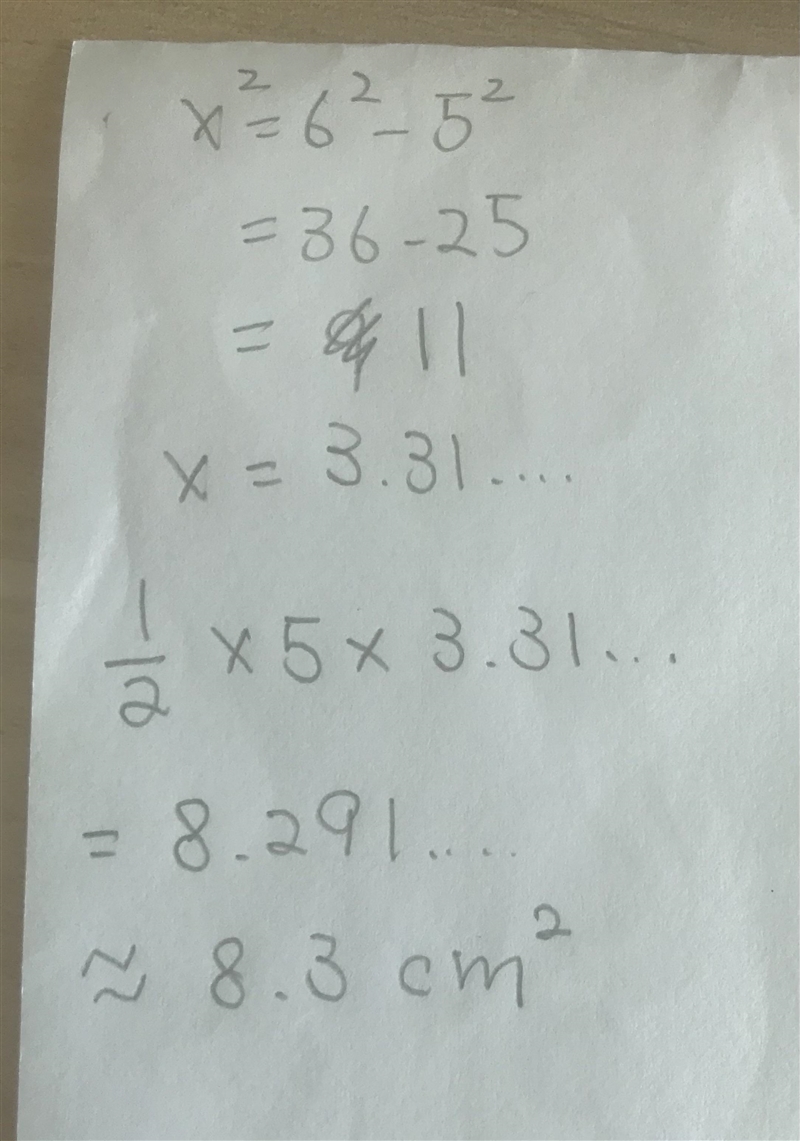 x² = 6² - 5²
= 36 - 25
= 11
x = 3.31....
1/2 × 5 × 3.31...
= 8.291....
≈ 8.3 cm²